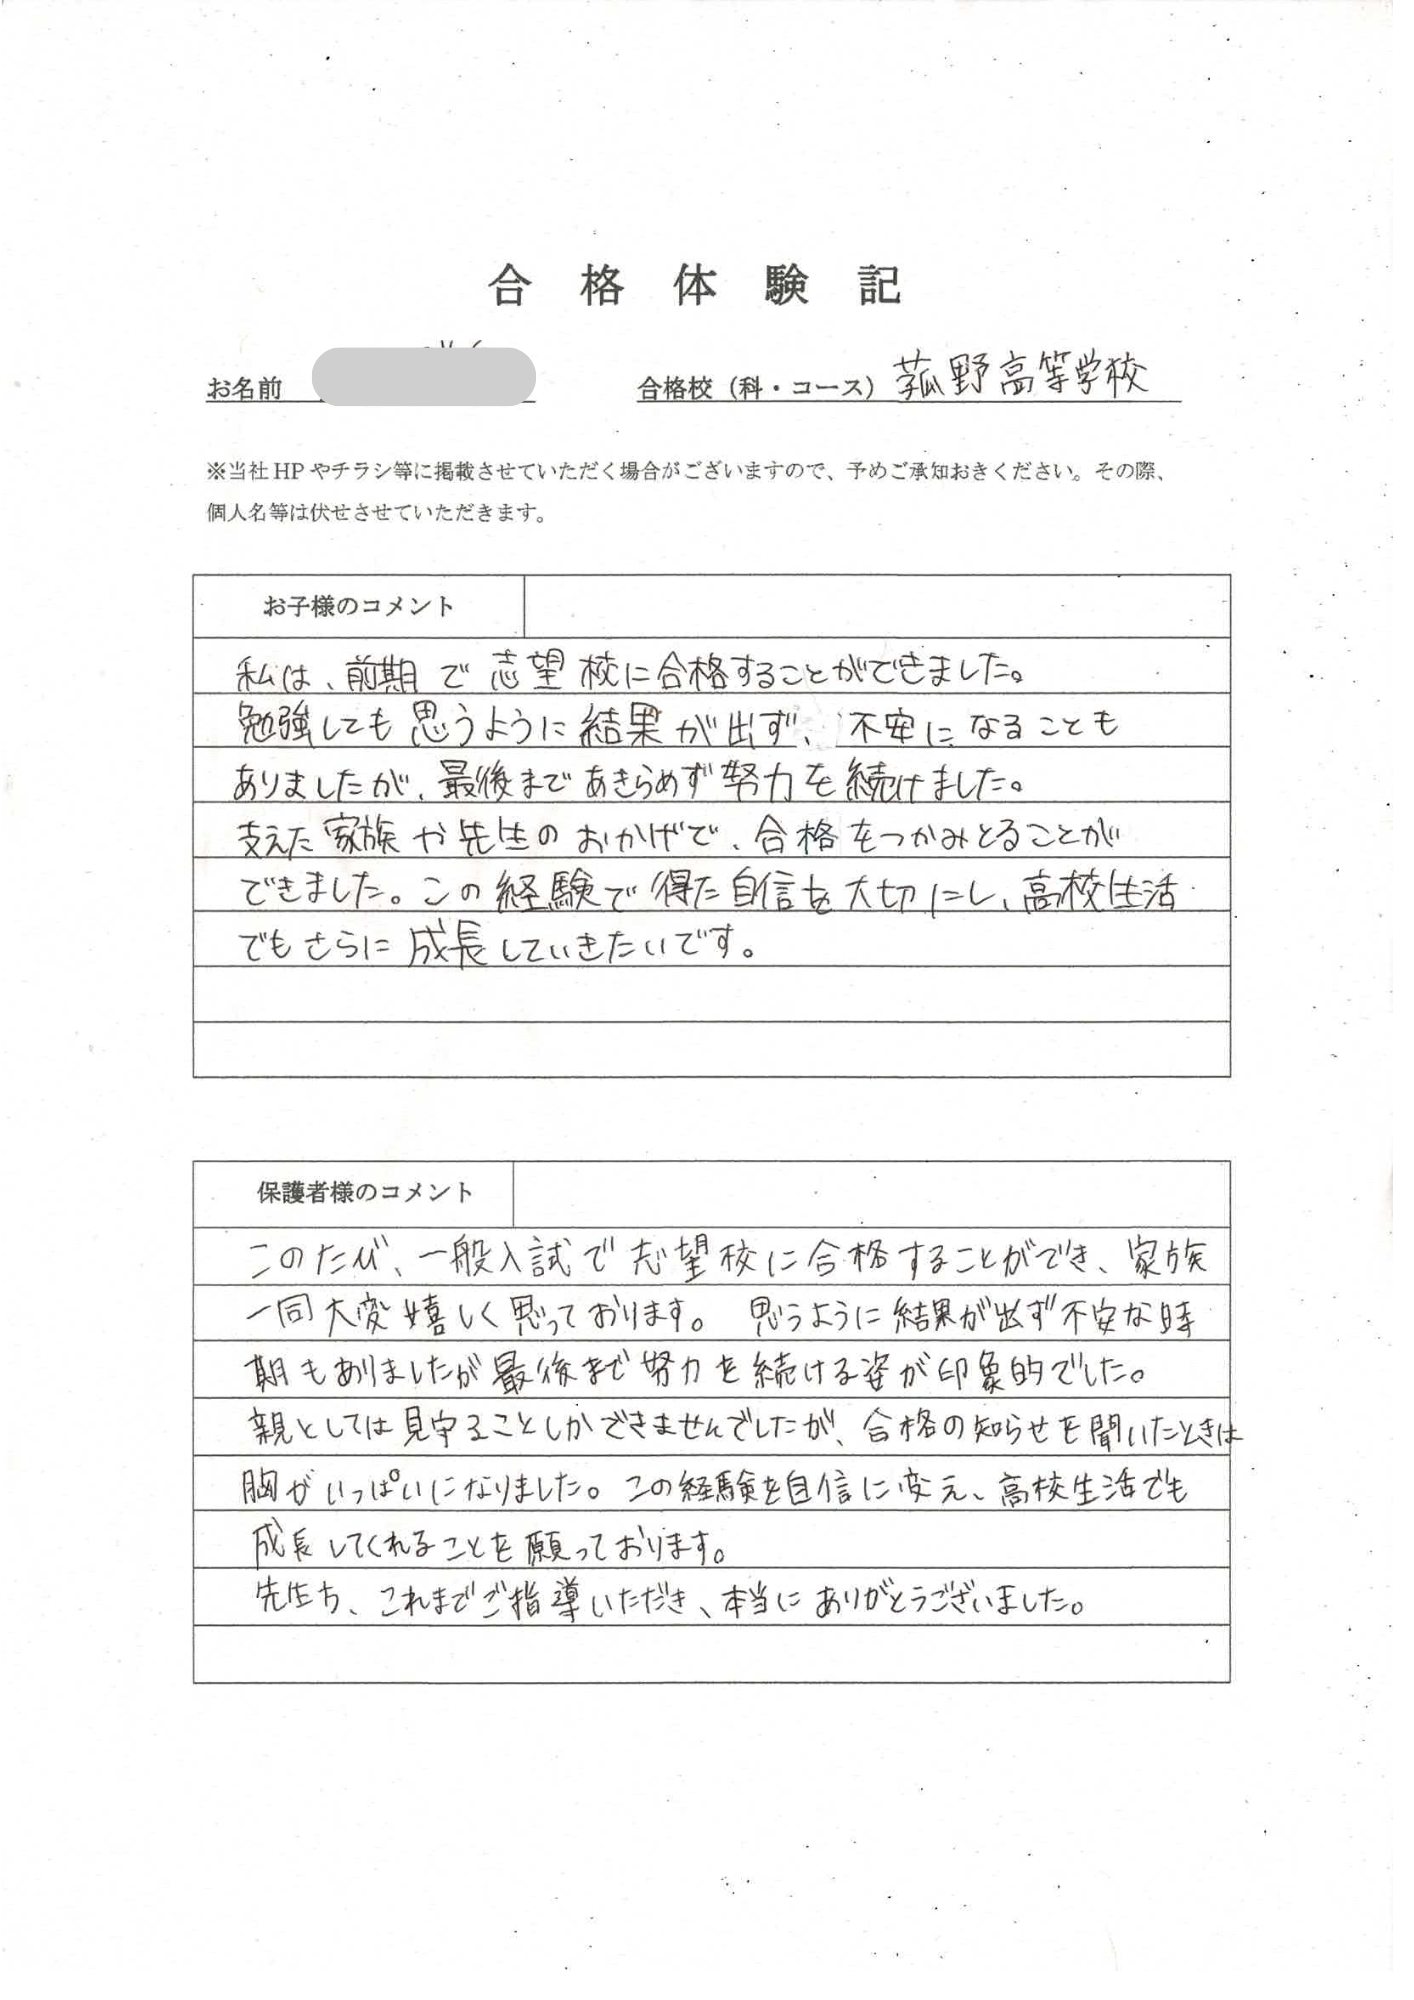 合格体験記
お名前
合格校（科・コース）菰野高等学校
※当社HPやチラシ等に掲載させていただく場合がございますので、予めご承知おきください。その際、
個人名等は伏せさせていただきます。
お子様のコメント
私は、前期で志望校に合格することができました。
勉強しても思うように結果が出ず、不安になることも
ありましたが、最後まであきらめず努力を続けました。
支えた家族や先生のおかげで、合格をつかみとることが
できました。この経験で得た自信を大切にし、高校生活
でもさらに成長していきたいです。
保護者様のコメント
このたび、一般入試で志望校に合格することができ、家族
一同大変嬉しく思っております。 思うように結果が出ず不安な時
期もありましたが最後まで努力を続ける姿が印象的でした。
親としては見守ることしかできませんでしたが、合格の知らせを聞いたときは
胸がいっぱいになりました。この経験を自信に変え、高校生活でも
成長してくれることを願っております。
先生方、これまでご指導いただき、本当にありがとうございました。